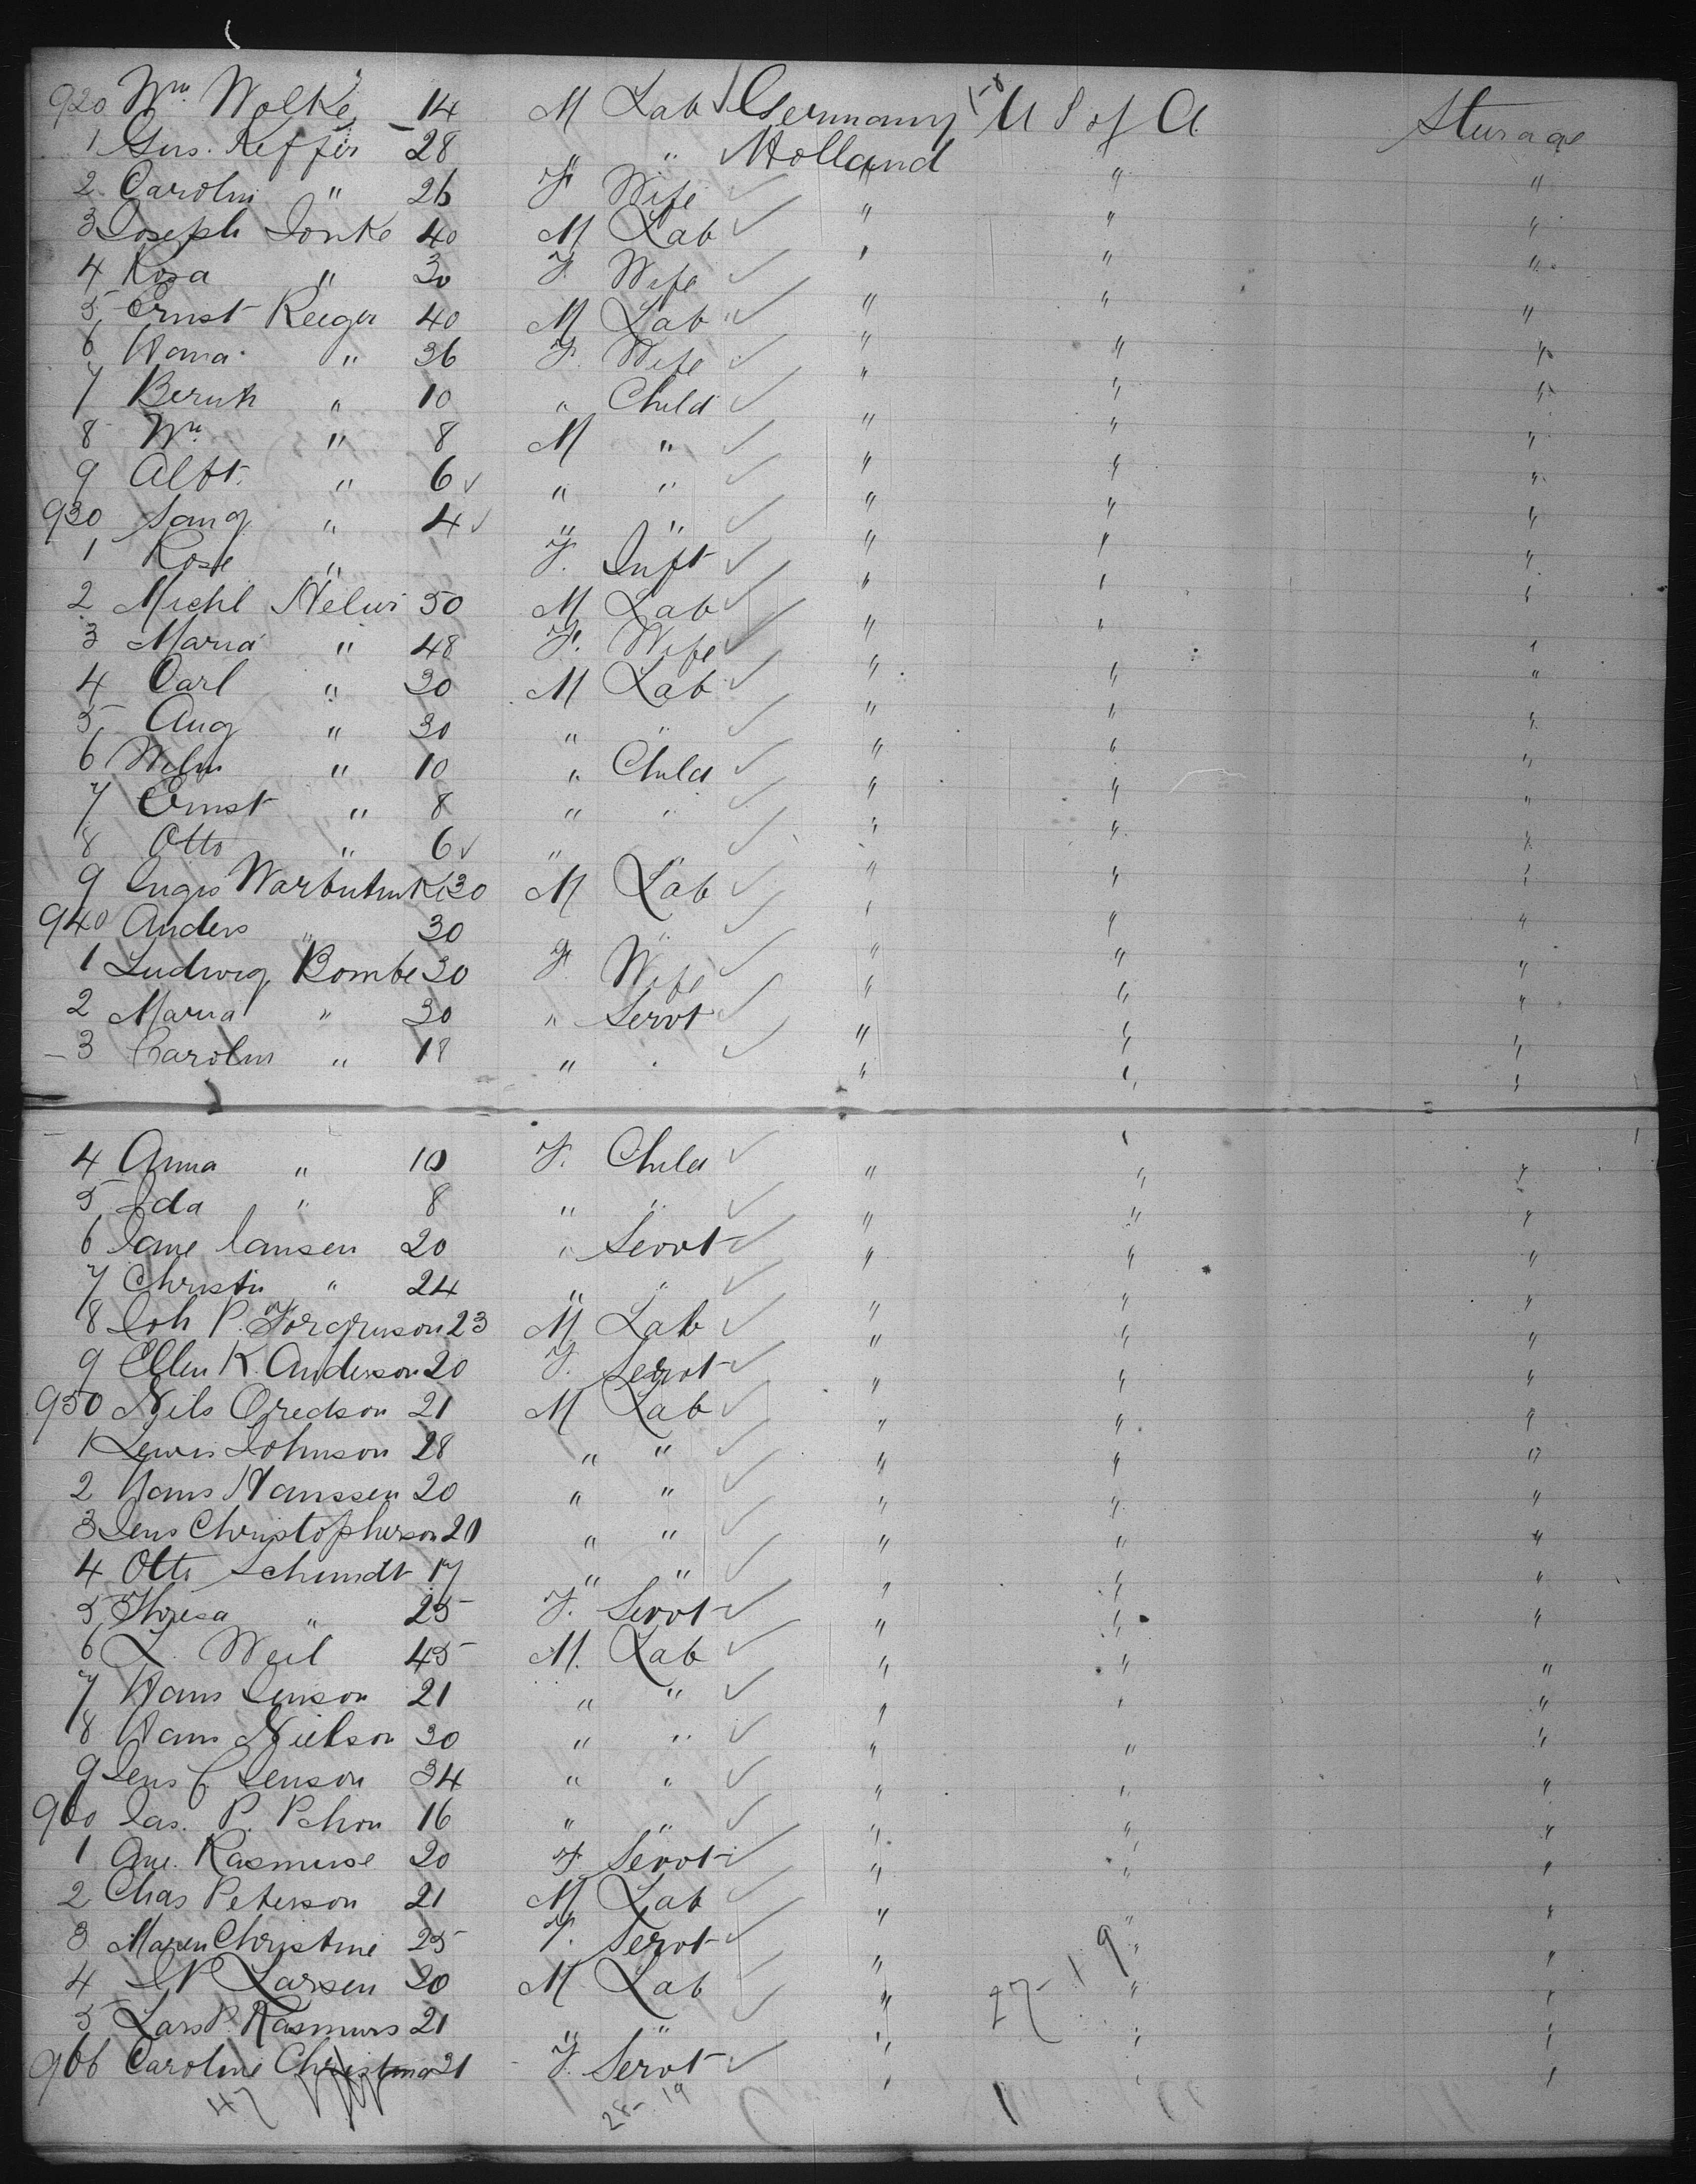 920 Wm Wolke 14 M Lab Germany U S of A Sturage
1 Gus. Keffer 28 " " Holland
2 Carolin " 26 F Wife " " "
3 Joseph Jonke 40 M Lab " " "
4 Rosa " 30 F. Wife " " "
5 Ernst Reeger 40 M Lab " " "
6 Hana " 36 F. Wife " " "
7 " 10 " Child " " "
8 Wm " 8 M " " " "
9 Albt. " 6 " " " " "
930 " 4 " " " " "
1 Rose " F. Inft " " "
2 Michl Helwi 50 M Lab " " "
3 Maria " 48 F. Wife " " "
4 Carl " 30 M Lab " " "
5 Aug " 30 " " " " "
6 Wilm " 10 " Child " " "
7 Ernst " 8 " " " " "
8 Otto " 6 " " " " "
9 30 M Lab " " "
940 Anders " 30 " " " "
1 Ludwig Bombe 30 F. Wife " " "
2 Maria " 30 " Servt " " "
3 Carolin " 18 " " " " "
4 Anna " 10 F. Child " " "
5 Ida " 8 " " " " "
6 Jane Jansen 20 " Servt " " "
7 Christin " 24 " " " " "
8 Joh P. 23 M Lab " " "
9 Ellen K. Anderson 20 F. Servt " " "
950 Nils Oredson 21 M Lab " " "
1 Lewis Johnson 28 " " " " "
2 Hans Hanssen 20 " " " " "
3 Jens Christopherson 20 " " " " "
4 Otto Schmidt 17 " " " " "
5 Thresa " 25 F. Servt " " "
6 L. Weil 45 M. Lab " " "
7 Hans Jenson 21 " " " " "
8 Hans Nielson 30 " " " " "
9 Jens C Jenson 34 " " " " "
960 Jas. P. 16 " " " " "
1 Ane. Rasmuse 20 F Servt " " "
2 Chas Peterson 21 M Lab " " "
3 Maren Christine 25 F. Servt " " "
4 Larsen 20 M Lab " " "
5 Lars P. Rasmurs 21 " " " " "
966 Caroline Christina 21 F. Servt " " "
27-19
47
28-19